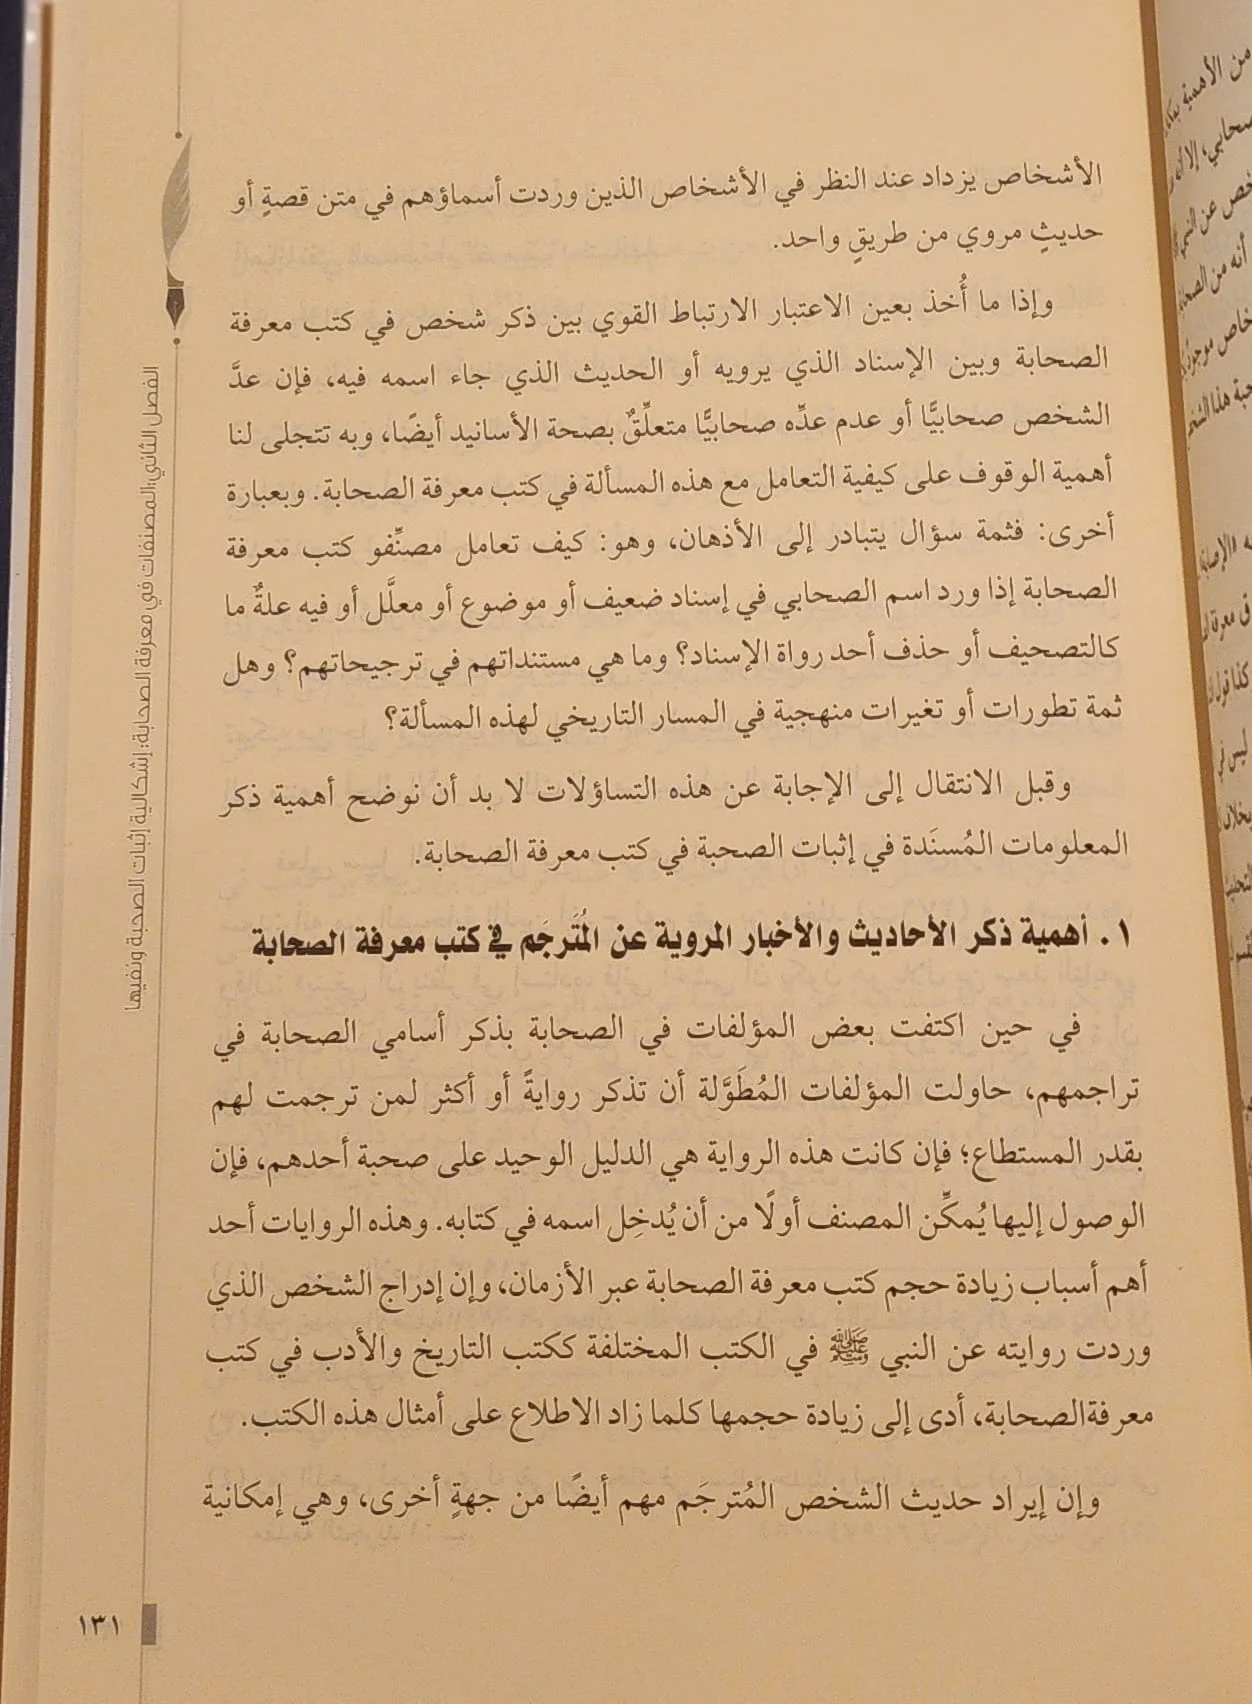 الأشخاص يزداد عند النظر في الأشخاص الذين وردت أسماؤهم في متن قصةٍ أو
حديثٍ مروي من طريقٍ واحد.
وإذا ما أُخذ بعين الاعتبار الارتباط القوي بين ذكر شخص في كتب معرفة
الصحابة وبين الإسناد الذي يرويه أو الحديث الذي جاء اسمه فيه، فإن عدَّ
الشخص صحابيًّا أو عدم عدِّه صحابيًّا متعلِّقٌ بصحة الأسانيد أيضًا، وبه تتجلى لنا
أهمية الوقوف على كيفية التعامل مع هذه المسألة في كتب معرفة الصحابة. وبعبارة
أخرى: فثمة سؤال يتبادر إلى الأذهان، وهو: كيف تعامل مصنِّفو كتب معرفة
الصحابة إذا ورد اسم الصحابي في إسناد ضعيف أو موضوع أو معلَّل أو فيه علةٌ ما
كالتصحيف أو حذف أحد رواة الإسناد؟ وما هي مستنداتهم في ترجيحاتهم؟ وهل
ثمة تطورات أو تغيرات منهجية في المسار التاريخي لهذه المسألة؟
وقبل الانتقال إلى الإجابة عن هذه التساؤلات لا بد أن نوضح أهمية ذكر
المعلومات المُسنَدة في إثبات الصحبة في كتب معرفة الصحابة.
١. أهمية ذكر الأحاديث والأخبار المروية عن المُتَرجَم في كتب معرفة الصحابة
في حين اكتفت بعض المؤلفات في الصحابة بذكر أسامي الصحابة في
تراجمهم، حاولت المؤلفات المُطَوَّلة أن تذكر روايةً أو أكثر لمن ترجمت لهم
بقدر المستطاع؛ فإن كانت هذه الرواية هي الدليل الوحيد على صحبة أحدهم، فإن
الوصول إليها يُمكِّن المصنف أولًا من أن يُدخِل اسمه في كتابه. وهذه الروايات أحد
أهم أسباب زيادة حجم كتب معرفة الصحابة عبر الأزمان، وإن إدراج الشخص الذي
وردت روايته عن النبي ﷺ في الكتب المختلفة ككتب التاريخ والأدب في كتب
معرفة الصحابة، أدى إلى زيادة حجمها كلما زاد الاطلاع على أمثال هذه الكتب.
وإن إيراد حديث الشخص المُترجَم مهم أيضًا من جهةٍ أخرى، وهي إمكانية
الفصل الثاني: المصنفات في معرفة الصحابة: إشكالية إثبات الصحبة ونفيها
١٣١
من الأهمية
صحابي، إلا أن
عن النبي
أنه من الصحابة
موجودة
هذا
كذا قول
ليس في